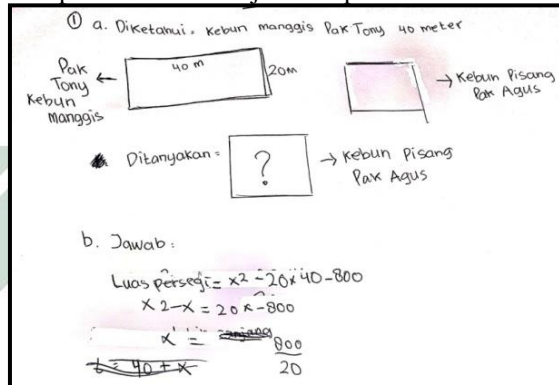 ① a. Diketahui. Kebun manggis Pak Tony 40 meter
Pak Tony Kebun Manggis
40 m
20m
Kebun Pisang Pak Agus
Ditanyakan =
?
Kebun Pisang Pak Agus
b. Jawab :
Luas persegi = x2 - 20x 40-800
x 2-x = 20x-800
x =
800
20
t = 40 + x